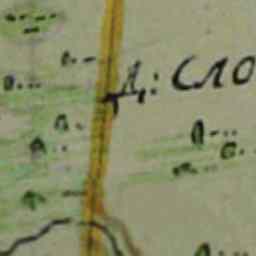 Д: СЛО